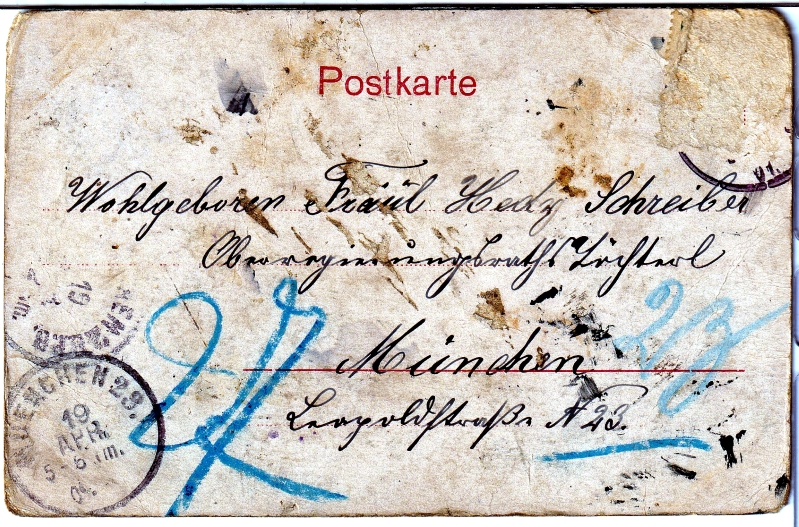 Postkarte
Wohlgeboren Fräul Hedy Schreiber
Oberregierungsraths Töchterl
München
Leopoldstraße N 23.
23
01.
19
MUENCHEN 23.
19
APR.
5-6 m.
01.